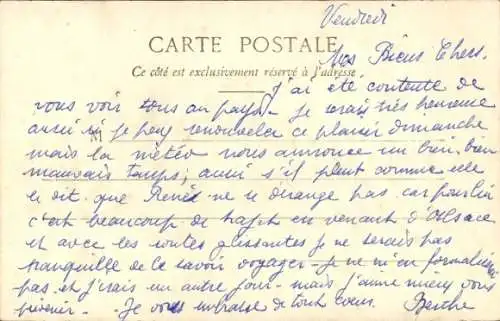 Vendredi
CARTE POSTALE
Mes Biens Chers.
Ce côté est exclusivement réservé à l'adresse
j'ai été contente de
vous voir tous au pays. Je serai très heureuse
aussi si je peux renouveler ce plaisir dimanche
mais la météo nous annonce un bien, bien
mauvais temps; aussi s'il pleut comme elle
le dit que René ne se dérange pas car pour lui
c'est beaucoup de trajet en venant d'Alsace
et avec les routes glissantes je ne serais pas
tranquille de le savoir voyager. Je ne m'en formalise
pas et j'irais un autre jour - mais j'aime mieux vous
prévenir. Je vous embrasse de tout cœur. Berthe